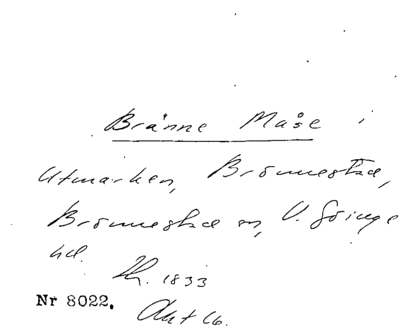 Bränne Måse i
Utmarken, Brönnestad,
Brönnestad sn, V. Göinge
hd.
Lh. 1833
Nr 8022. Akt 16.